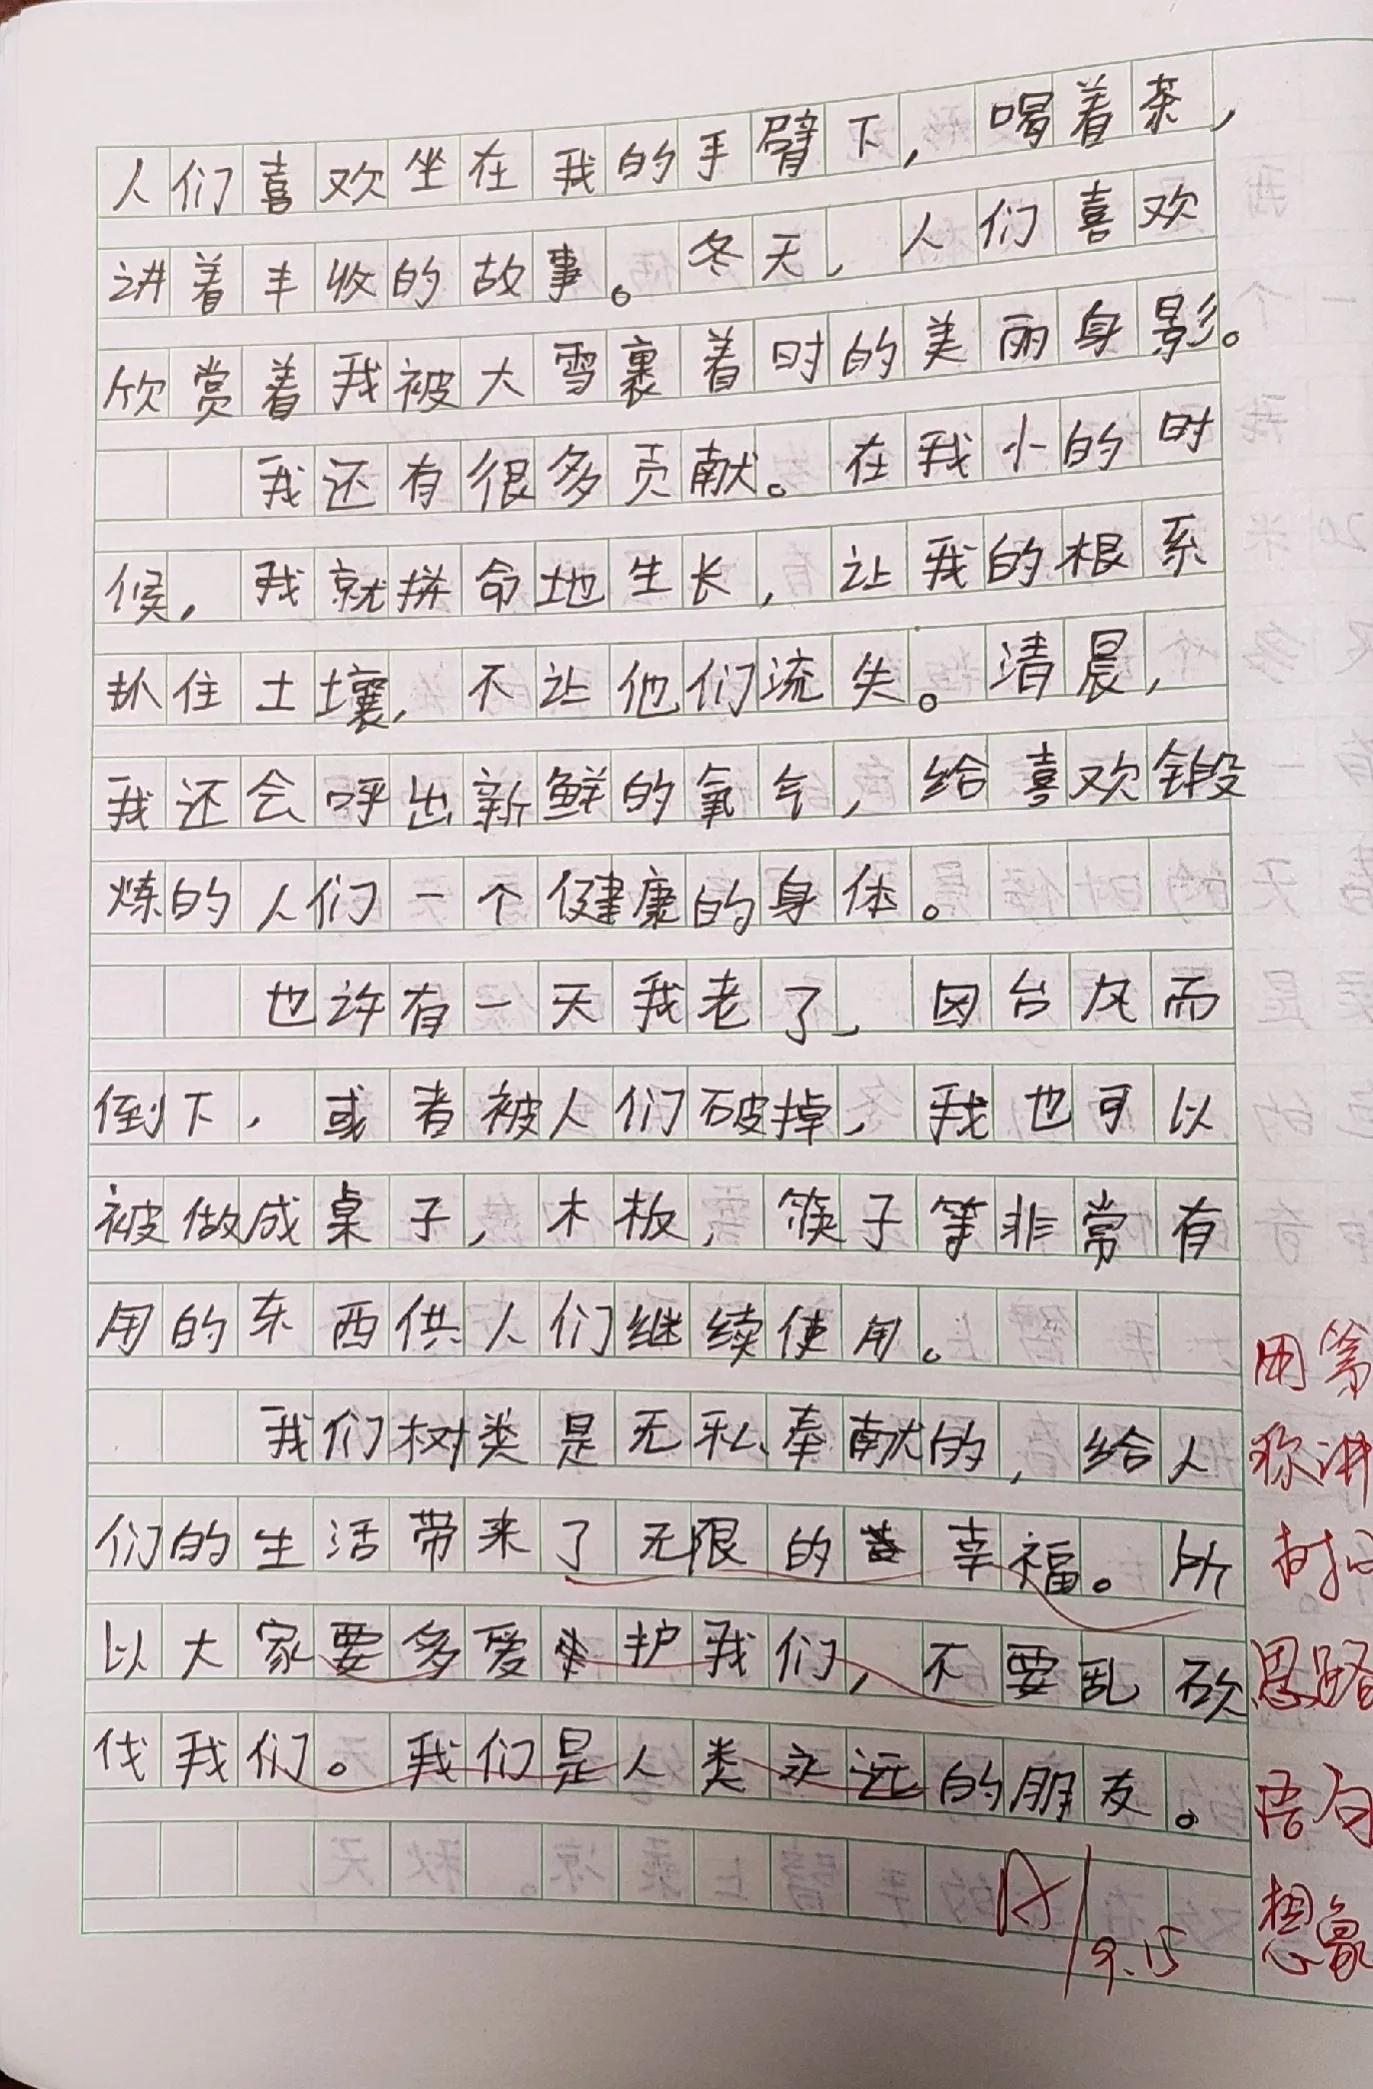 人们喜欢坐在我的手臂下，喝着茶，
讲着丰收的故事。冬天，人们喜欢
欣赏着我被大雪裹着时的美丽身影。
我还有很多贡献。在我小的时
候，我就拼命地生长，让我的根系
扒住土壤，不让他们流失。清晨，
我还会呼出新鲜的氧气，给喜欢锻
炼的人们一个健康的身体。
也许有一天我老了，因台风而
倒下，或者被人们破掉，我也可以
被做成桌子，木板，筷子等非常有
用的东西供人们继续使用。
我们树类是无私奉献的，给人
们的生活带来了无限的幸福。所
以大家要多爱护我们，不要乱砍
伐我们。我们是人类永远的朋友。
用第
称讲
树
思路
语句
想象
A/9.15